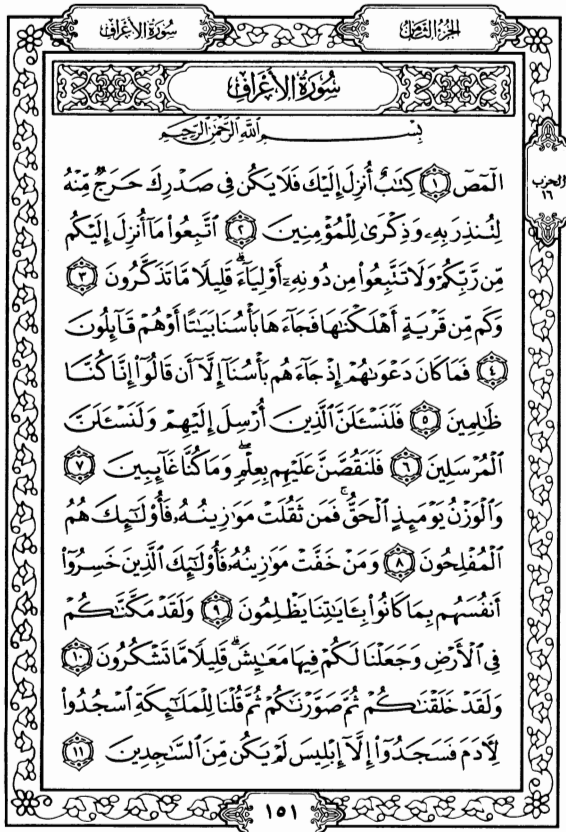 الجزء الثامن
سورة الأعراف
سُورَةُ الأَعْرَافِ
بِسْمِ اللَّهِ الرَّحْمَٰنِ الرَّحِيمِ
الحزب
١٦
الٓمٓصٓ ١ كِتَٰبٌ أُنزِلَ إِلَيْكَ فَلَا يَكُن فِى صَدْرِكَ حَرَجٌ مِّنْهُ
لِتُنذِرَ بِهِۦ وَذِكْرَىٰ لِلْمُؤْمِنِينَ ٢ ٱتَّبِعُوا۟ مَآ أُنزِلَ إِلَيْكُم
مِّن رَّبِّكُمْ وَلَا تَتَّبِعُوا۟ مِن دُونِهِۦٓ أَوْلِيَآءَ ۗ قَلِيلًا مَّا تَذَكَّرُونَ ٣
وَكَم مِّن قَرْيَةٍ أَهْلَكْنَٰهَا فَجَآءَهَا بَأْسُنَا بَيَٰتًا أَوْ هُمْ قَآئِلُونَ
٤ فَمَا كَانَ دَعْوَىٰهُمْ إِذْ جَآءَهُم بَأْسُنَآ إِلَّآ أَن قَالُوٓا۟ إِنَّا كُنَّا
ظَٰلِمِينَ ٥ فَلَنَسْـَٔلَنَّ ٱلَّذِينَ أُرْسِلَ إِلَيْهِمْ وَلَنَسْـَٔلَنَّ
ٱلْمُرْسَلِينَ ٦ فَلَنَقُصَّنَّ عَلَيْهِم بِعِلْمٍ ۖ وَمَا كُنَّا غَآئِبِينَ ٧
وَٱلْوَزْنُ يَوْمَئِذٍ ٱلْحَقُّ ۚ فَمَن ثَقُلَتْ مَوَٰزِينُهُۥ فَأُو۟لَٰٓئِكَ هُمُ
ٱلْمُفْلِحُونَ ٨ وَمَنْ خَفَّتْ مَوَٰزِينُهُۥ فَأُو۟لَٰٓئِكَ ٱلَّذِينَ خَسِرُوٓا۟
أَنفُسَهُم بِمَا كَانُوا۟ بِـَٔايَٰتِنَا يَظْلِمُونَ ٩ وَلَقَدْ مَكَّنَّٰكُمْ
فِى ٱلْأَرْضِ وَجَعَلْنَا لَكُمْ فِيهَا مَعَٰيِشَ ۗ قَلِيلًا مَّا تَشْكُرُونَ ١٠
وَلَقَدْ خَلَقْنَٰكُمْ ثُمَّ صَوَّرْنَٰكُمْ ثُمَّ قُلْنَا لِلْمَلَٰٓئِكَةِ ٱسْجُدُوا۟
لِـَٔادَمَ فَسَجَدُوٓا۟ إِلَّآ إِبْلِيسَ لَمْ يَكُن مِّنَ ٱلسَّٰجِدِينَ ١١
١٥١